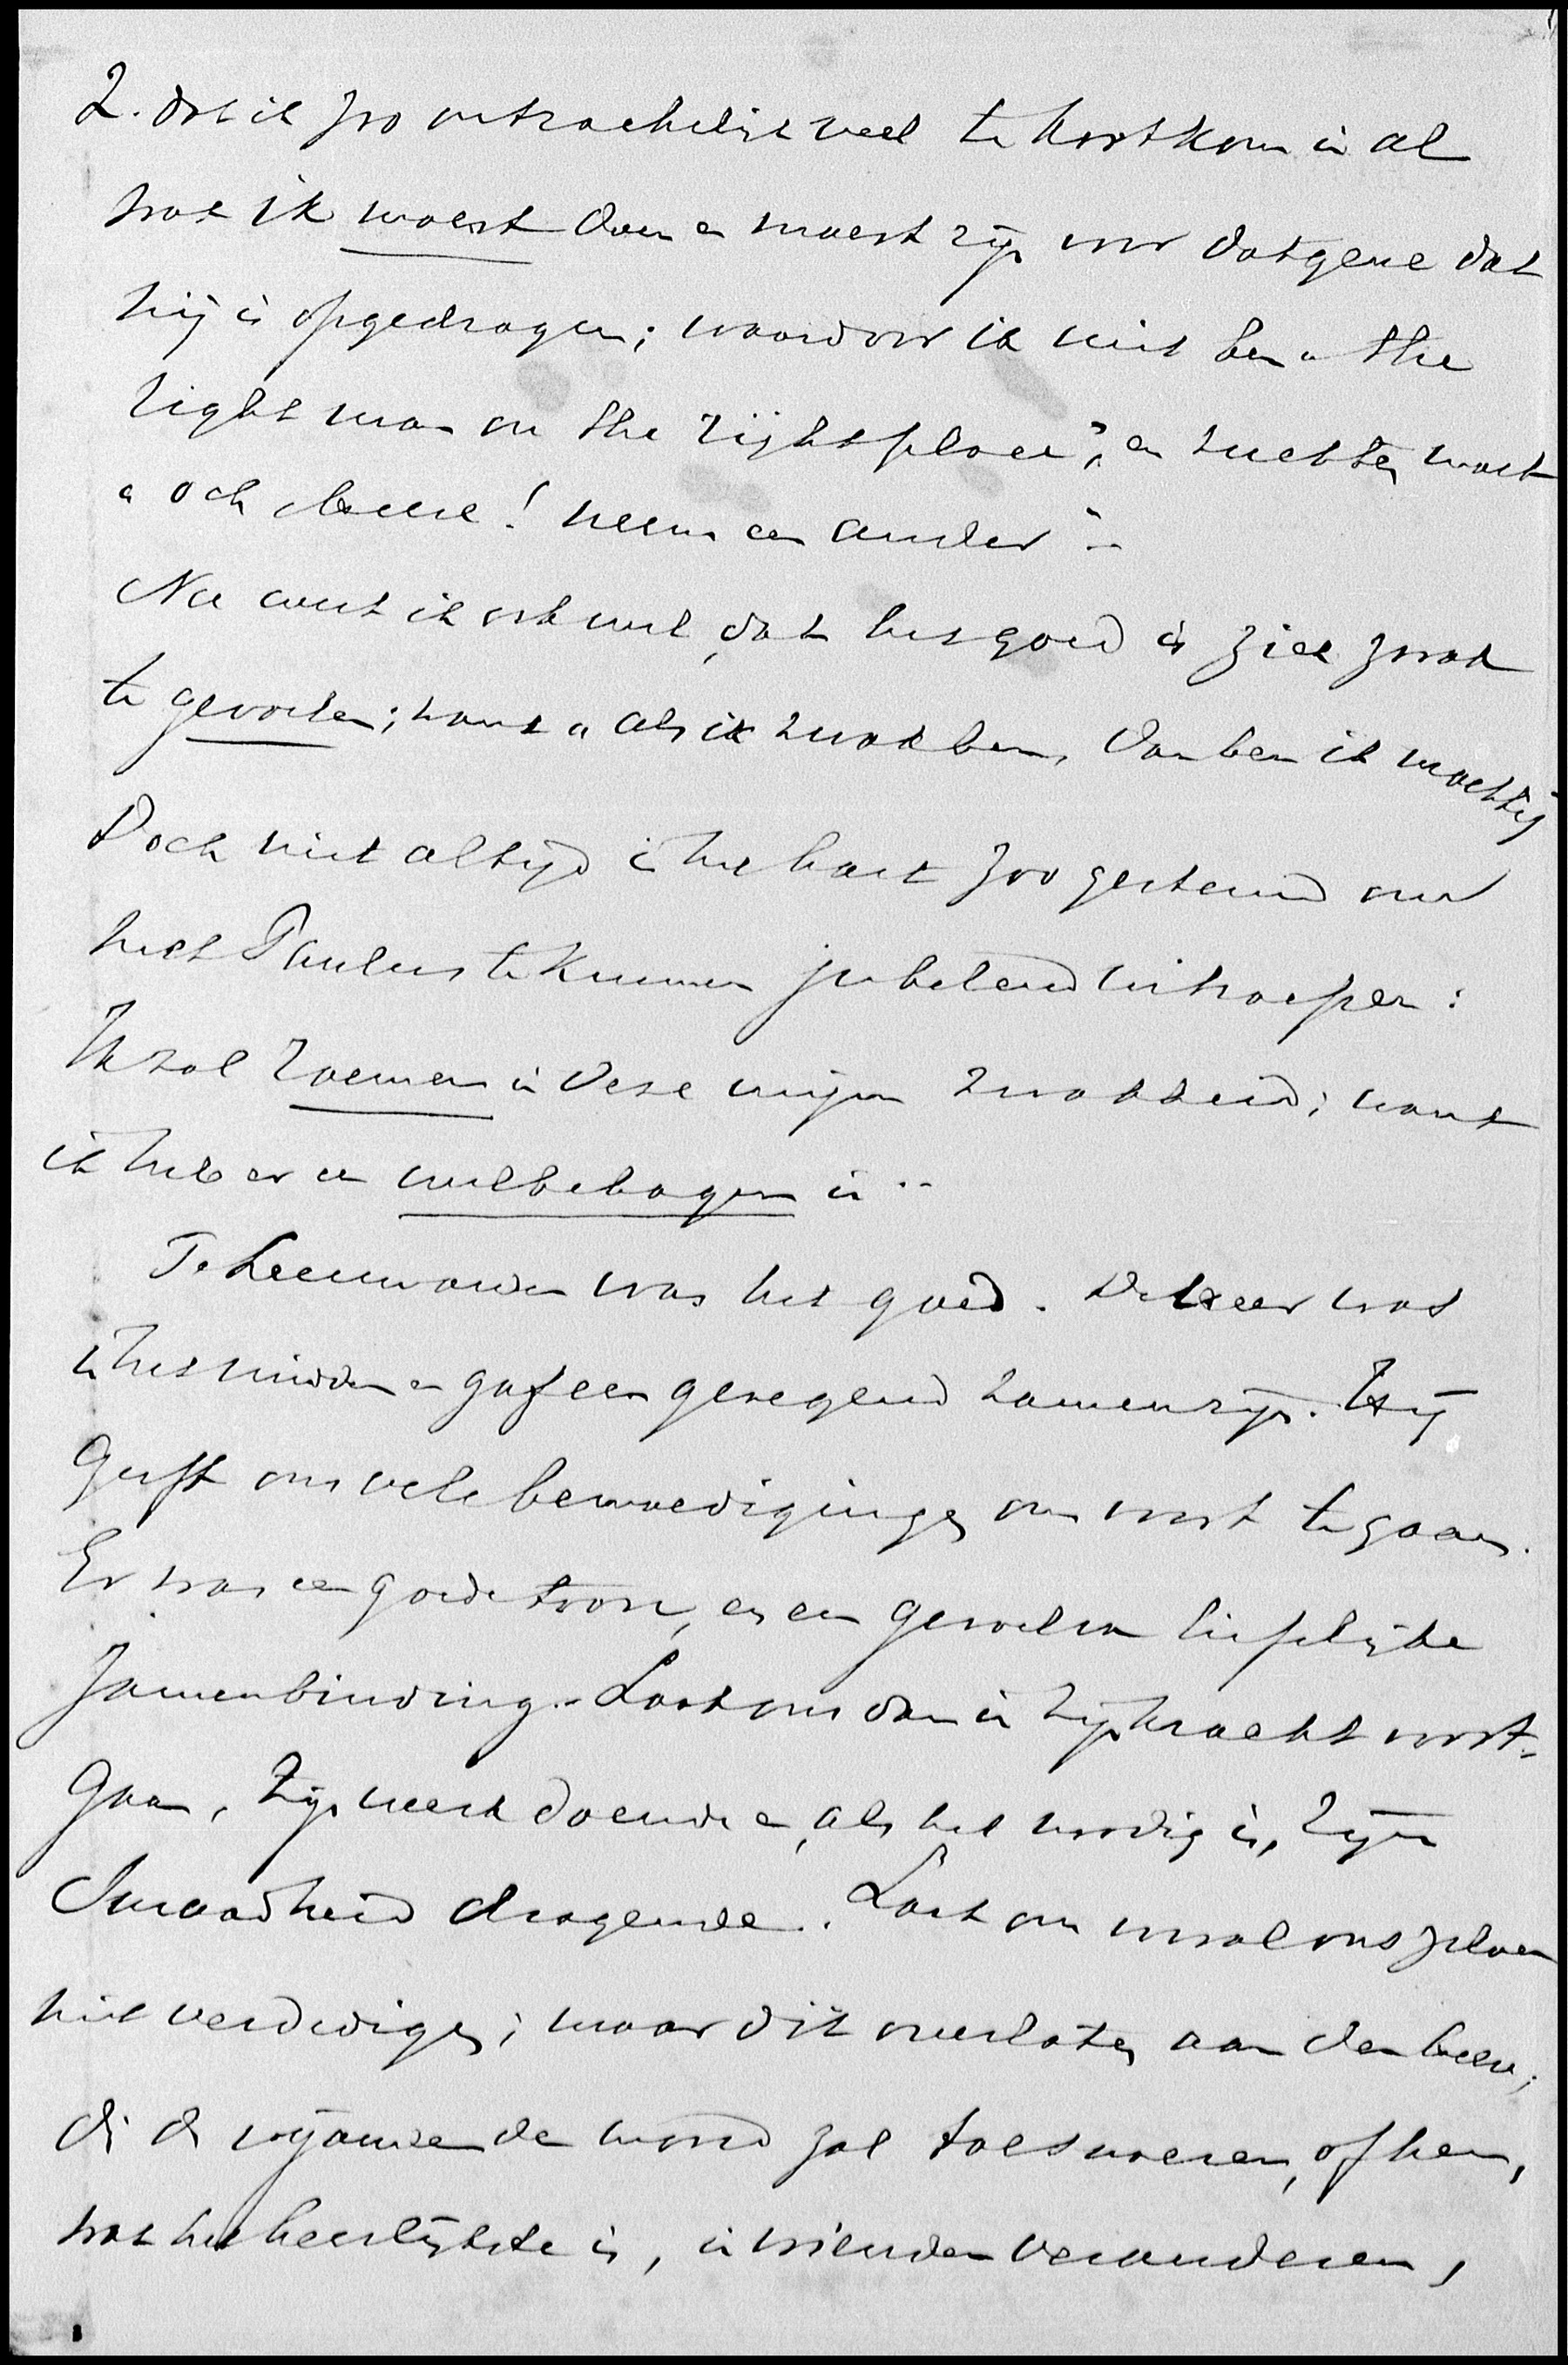 2. dat ik zoo ontzachelijk veel te kort kom in al
wat ik moest doen en moest zijn voor datgene dat
mij is opgedragen; waarvoor ik niet ben "the
right man on the right place", en zuchten moet
"och Heere! neem een ander".
Nu weet ik ook wel, dat het goed is zich zwak
te gevoelen; want "als ik zwak ben, dan ben ik machtig
Doch niet altijd is het hart zoo gestemd om
met Paulus te kunnen jubelend uitroepen:
Ik zal roemen in deze mijne zwakheid; want
ik heb er een welbehagen in."
Te Leeuwarden was het goed. De Heer was
in het midden en gaf een gezegend samenzijn. Hij
geeft ons vele bemoedigingen om voort te gaan.
Er was een goede toon, en een gevoelen liefelijke
zamenbinding. Laat ons dan in Zijn kracht voort-
gaan, Zijn werk doende en, als het noodig is, Zijne
Smaadheid dragende. Laat ons vooral ons zelven
niet verdedigen; maar dit overlaten aan den Heer;
die de vijanden de mond zal toesnoeren, of hen,
wat het heerlijkste is, in vrienden veranderen,